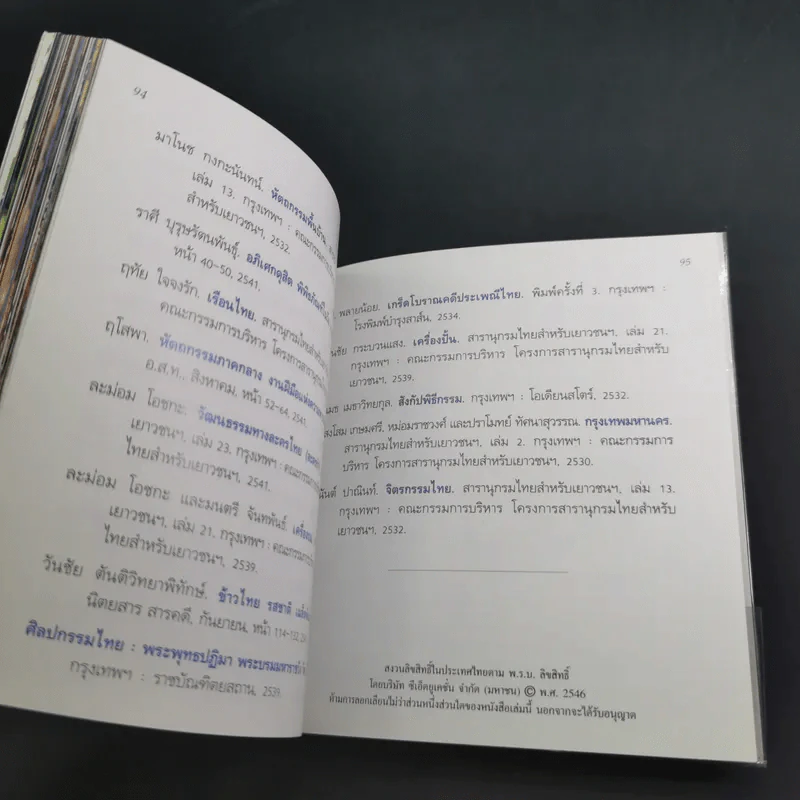 94
มาโนช กงกะนันทน์. หัตถกรรมพื้นบ้าน.
เล่ม 13. กรุงเทพฯ : คณะกรรมการ
สำหรับเยาวชนฯ, 2532.
ราศี บุรุษรัตนพันธุ์. อภิเศกดุสิต พิพิธภัณฑ์
หน้า 40-50, 2541.
ฤทัย ใจจงรัก. เรือนไทย. สารานุกรมไทยสำหรับ
คณะกรรมการบริหาร โครงการสารานุกรม
ฤโสพา. หัตถกรรมภาคกลาง งานฝีมือแห่ง
อ.ส.ท., สิงหาคม, หน้า 52-64, 2541.
ละม่อม โอชกะ. วัฒนธรรมทางละครไทย
เยาวชนฯ, เล่ม 23. กรุงเทพฯ : คณะกรรมการ
ไทยสำหรับเยาวชนฯ, 2541.
ละม่อม โอชกะ และมนตรี จันทพันธ์.
เยาวชนฯ, เล่ม 21. กรุงเทพฯ : คณะกรรมการ
ไทยสำหรับเยาวชนฯ, 2539.
วันชัย ตันติวิทยาพิทักษ์. ข้าวไทย รสชาติ
นิตยสาร สารคดี, กันยายน, หน้า
ศิลปกรรมไทย : พระพุทธปฏิมา พระบรมมหาราชวัง
กรุงเทพฯ : ราชบัณฑิตยสถาน, 2539.
95
พลายน้อย. เกร็ดโบราณคดีประเพณีไทย. พิมพ์ครั้งที่ 3. กรุงเทพฯ :
โรงพิมพ์บำรุงสาส์น, 2534.
กระบวนแสง. เครื่องปั้น. สารานุกรมไทยสำหรับเยาวชนฯ, เล่ม 21.
กรุงเทพฯ : คณะกรรมการบริหาร โครงการสารานุกรมไทยสำหรับ
เยาวชนฯ, 2539.
เมฆาวิทยกุล. สังกัปพิธีกรรม. กรุงเทพฯ : โอเดียนสโตร์, 2532.
เกษมศรี, หม่อมราชวงศ์ และปราโมทย์ ทัศนาสุวรรณ. กรุงเทพมหานคร.
สารานุกรมไทยสำหรับเยาวชนฯ, เล่ม 2. กรุงเทพฯ : คณะกรรมการ
บริหาร โครงการสารานุกรมไทยสำหรับเยาวชนฯ, 2530.
ปาณินท์. จิตรกรรมไทย. สารานุกรมไทยสำหรับเยาวชนฯ, เล่ม 13.
กรุงเทพฯ : คณะกรรมการบริหาร โครงการสารานุกรมไทยสำหรับ
เยาวชนฯ, 2532.
สงวนลิขสิทธิ์ในประเทศไทยตาม พ.ร.บ. ลิขสิทธิ์
โดยบริษัท ซีเอ็ดยูเคชั่น จำกัด (มหาชน) © พ.ศ. 2546
ห้ามการลอกเลียนไม่ว่าส่วนหนึ่งส่วนใดของหนังสือเล่มนี้ นอกจากจะได้รับอนุญาต